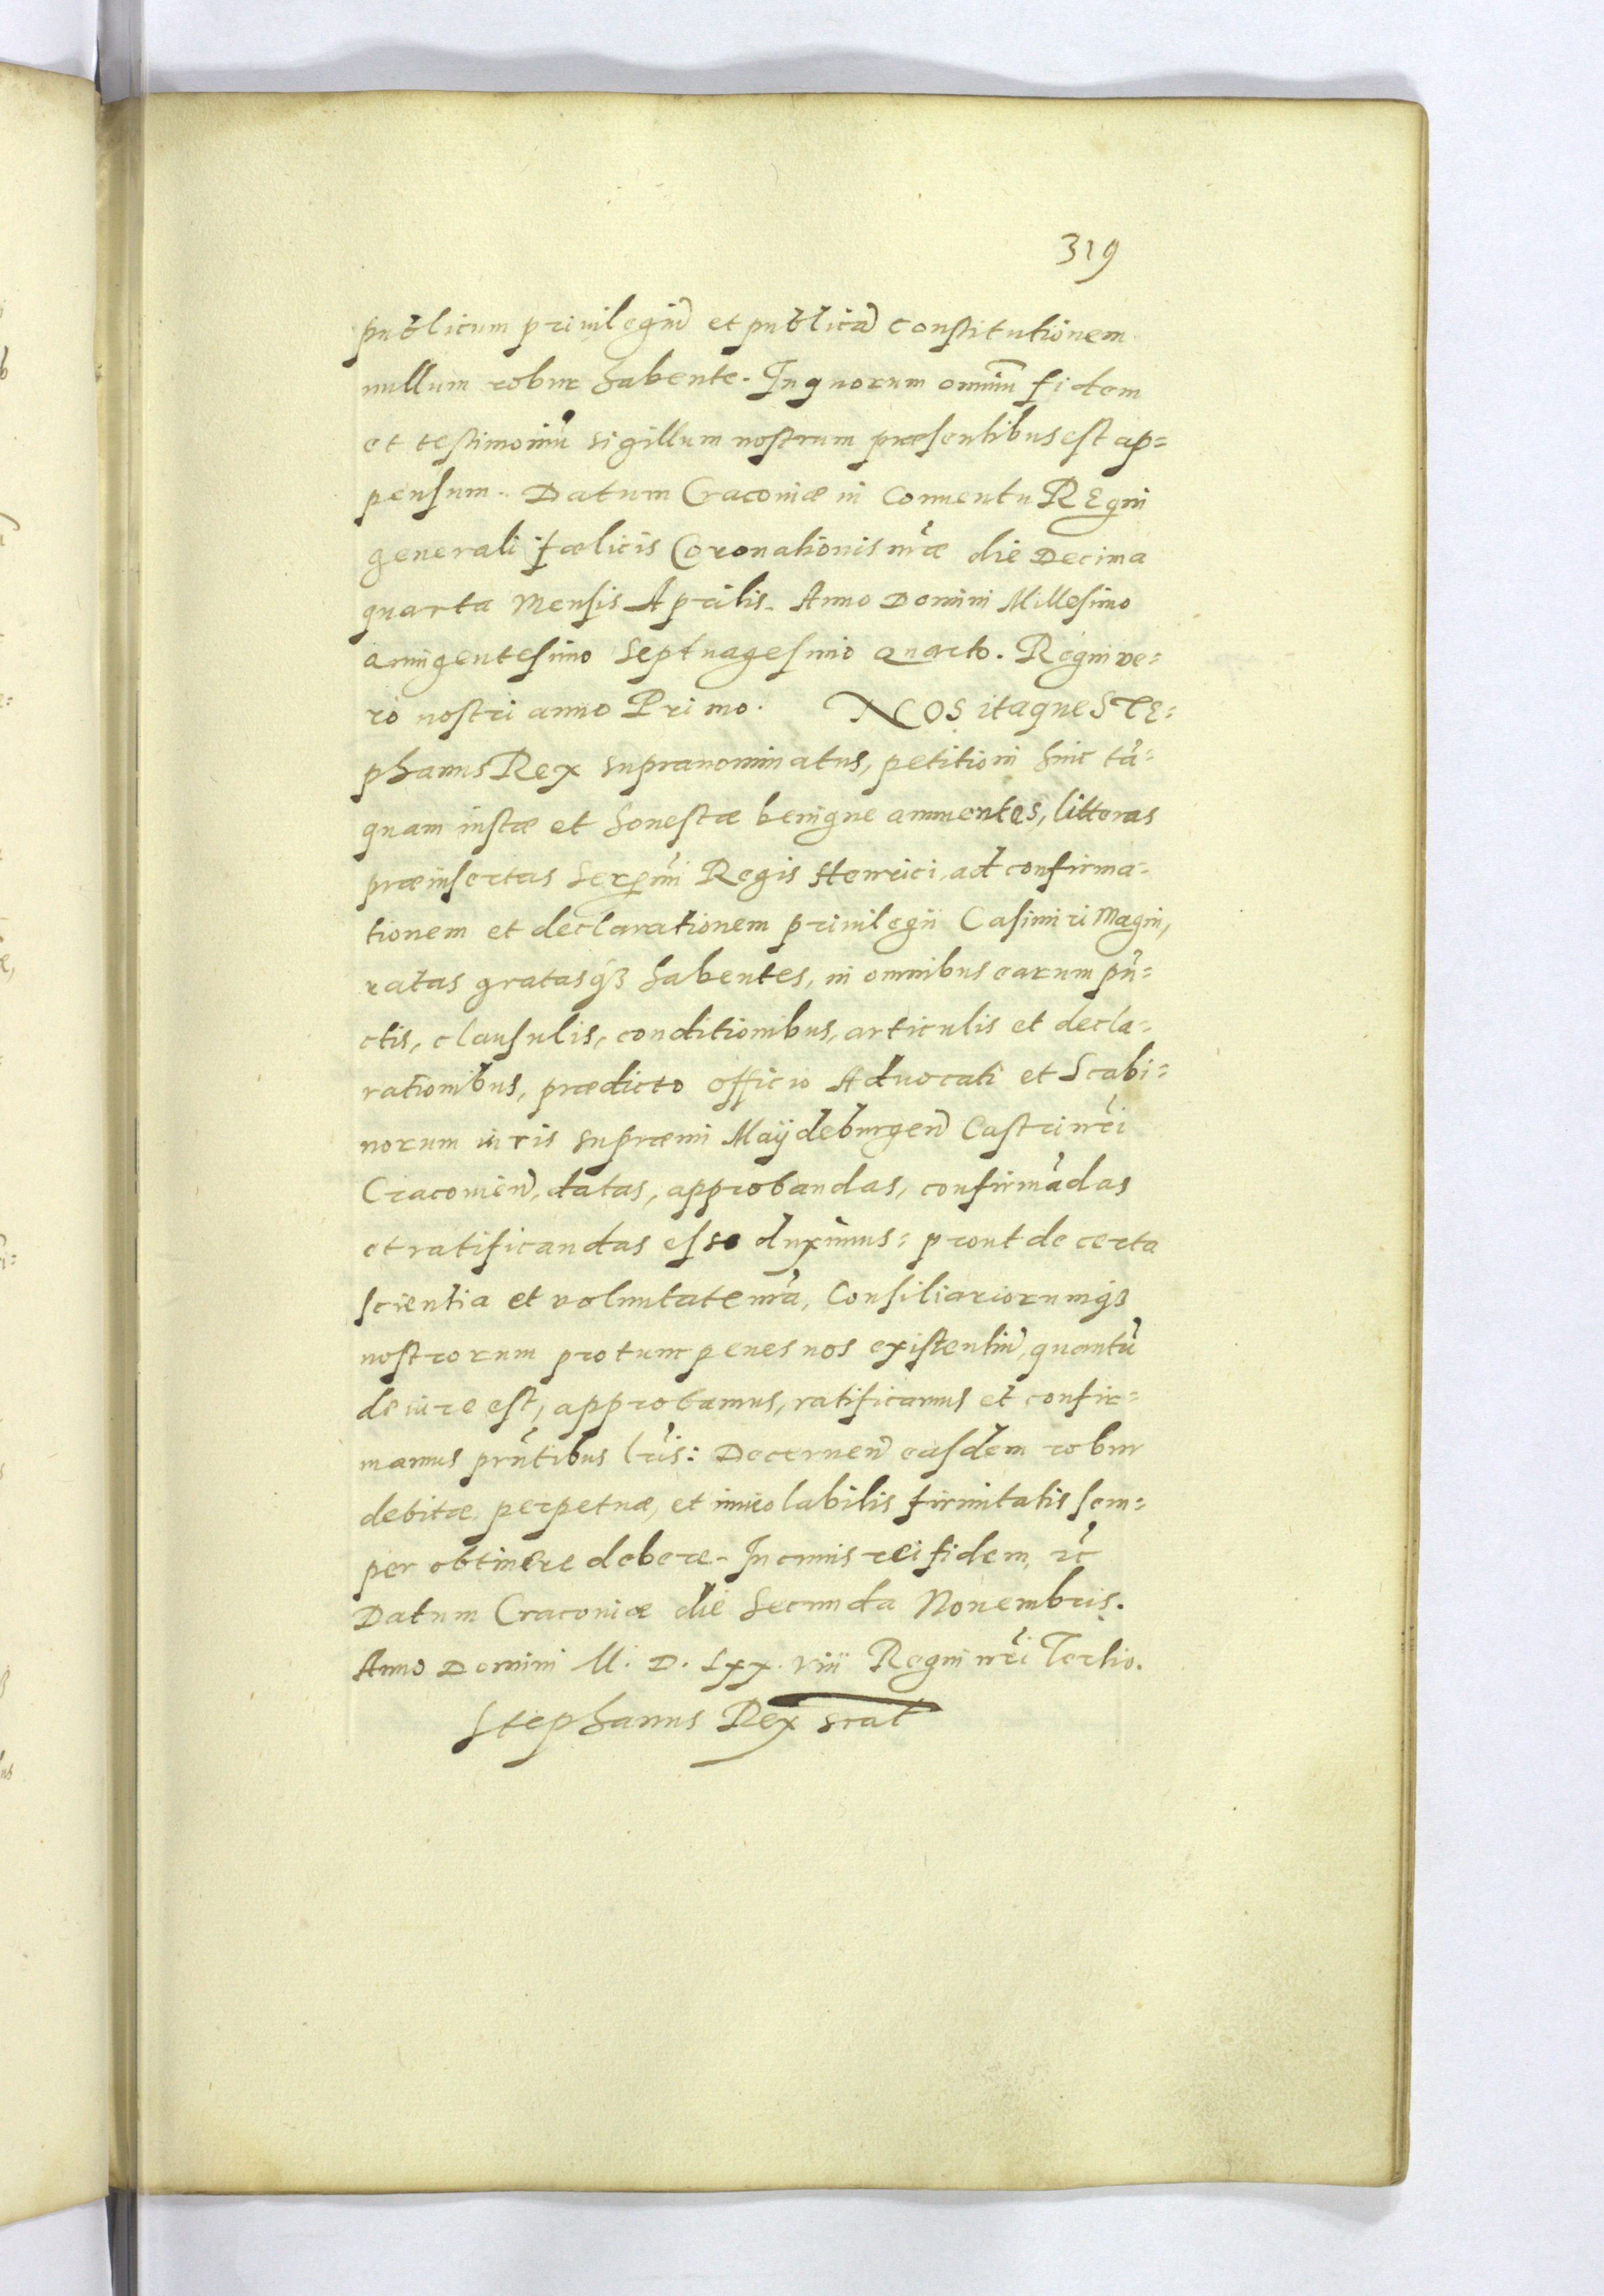 319
publicum priuilegiũ et publicã constitutionem
nullum robur habente. In quorum omniũ fidem
et testimoniũ sigillum nostrum præsentibus est ap=
pensum. Datum Cracouiæ in Conuentu REgni
generali fœlicis Coronationis nr̃æ die Decima
quarta Mensis Aprilis. Anno Domini Millesimo
Quingentesimo Septuagesimo Quarto. Regni ve=
ro nostri anno Primo. NOS itaque STE=
phanus Rex supranominatus, petitioni huic tã=
quam iustæ et honestæ benigne annuentes, litteras
præinsertas Serẽmi Regis Henrici, ad confirma=
tionem et declarationem priuilegii Casimiri Magni,
ratas gratasq́ꝫ habentes, in omnibus earum pũ=
ctis, clausulis, conditionibus, articulis et decla=
rationibus, prædicto officio Aduocati et Scabi=
norum iuris supræmi Maÿdeburgeñ Castri nr̃i
Cracouieñ, datas, approbandas, confirmãdas
et ratificandas esse duximus: prout de certa
scientia et voluntate nr̃a, Consiliariorumq́ꝫ
nostrorum pro tunc penes nos existentiũ, quantũ
de iure est, approbamus, ratificamus et confir=
mamus prñtibus lr̃is: Decerneñ easdem robur
debitæ perpetuæ, et inuiolabilis firmitatis sem=
per obtinere debere. In cuius rei fidem, ꝛc̃
Datum Cracouiæ die Secunda Nouembris.
Anno Domini M. D. Lxx. viii Regni nr̃i Tertio.
Stephanus Rex sc̃at